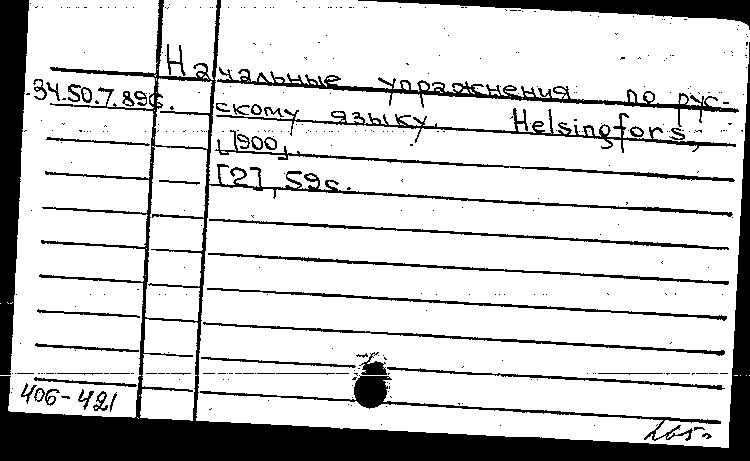 Начальные упражнения по рус-
34.50.7.896. скому языку. Helsingfors,
[1900].
[2], 59 с.
406-421